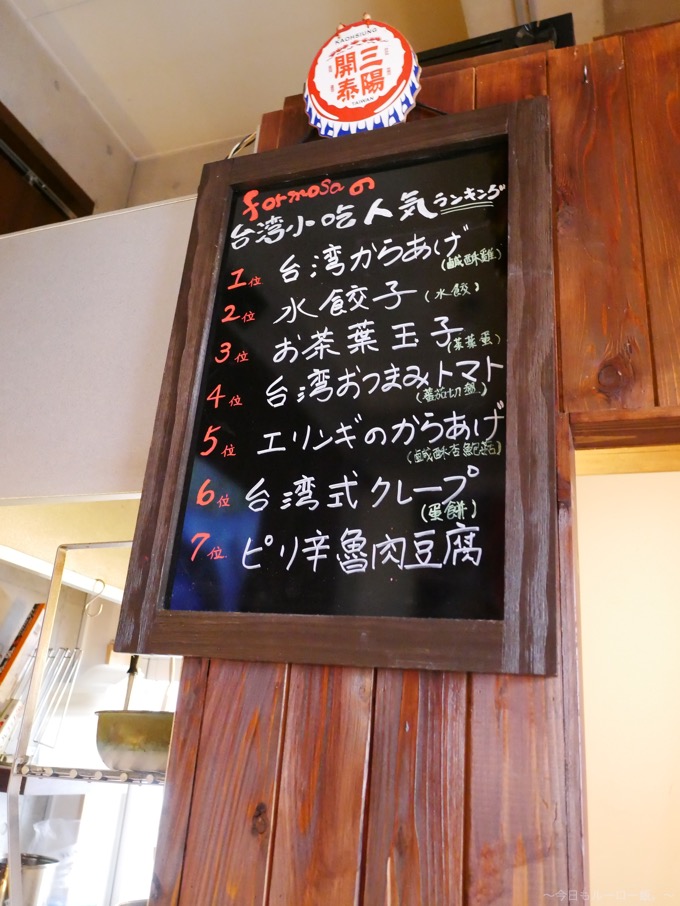 KAOHSIUNG
三陽
開泰
TAIWAN
formosaの
台湾小吃人気ランキング
1位 台湾からあげ
(鹹酥雞)
2位 水餃子(水餃)
3位 お茶葉玉子
(茶葉蛋)
4位 台湾おつまみトマト
(蕃茄切盤)
5位 エリンギのからあげ
(鹹酥杏鮑菇)
6位 台湾式クレープ
(蛋餅)
7位 ピリ辛魯肉豆腐